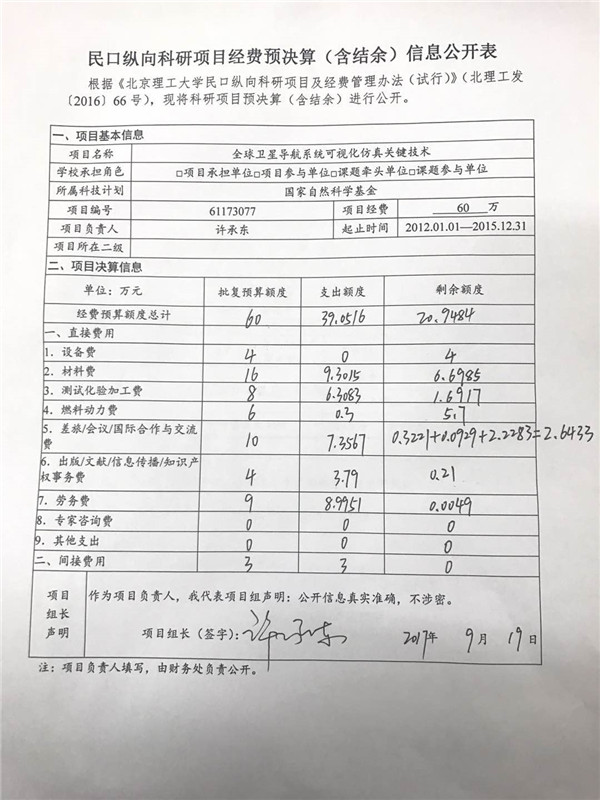 民口纵向科研项目经费预决算（含结余）信息公开表
根据《北京理工大学民口纵向科研项目及经费管理办法（试行）》（北理工发
〔2016〕66号），现将科研项目预决算（含结余）进行公开。
一、项目基本信息
项目名称 全球卫星导航系统可视化仿真关键技术
学校承担角色 □项目承担单位□项目参与单位□课题牵头单位□课题参与单位
所属科技计划 国家自然科学基金
项目编号 61173077 项目经费 60 万
项目负责人 许承东 起止时间 2012.01.01—2015.12.31
项目所在二级
二、项目决算信息
单位：万元 批复预算额度 支出额度 剩余额度
经费预算额度总计 60 39.0516 20.9484
一、直接费用
1. 设备费 4 0 4
2. 材料费 16 9.3015 6.6985
3. 测试化验加工费 8 6.3083 1.6917
4. 燃料动力费 6 0.3 5.7
5. 差旅/会议/国际合作与交流
费 10 7.3567 0.3221+0.0929+2.2283=2.6433
6. 出版/文献/信息传播/知识产
权事务费 4 3.79 0.21
7. 劳务费 9 8.9951 0.0049
8. 专家咨询费 0 0 0
9. 其他支出 0 0 0
二、间接费用 3 3 0
项目
组长
声明
作为项目负责人，我代表项目组声明：公开信息真实准确，不涉密。
项目组长（签字）：许承东 2017年 9月 19日
注：项目负责人填写，由财务处负责公开。